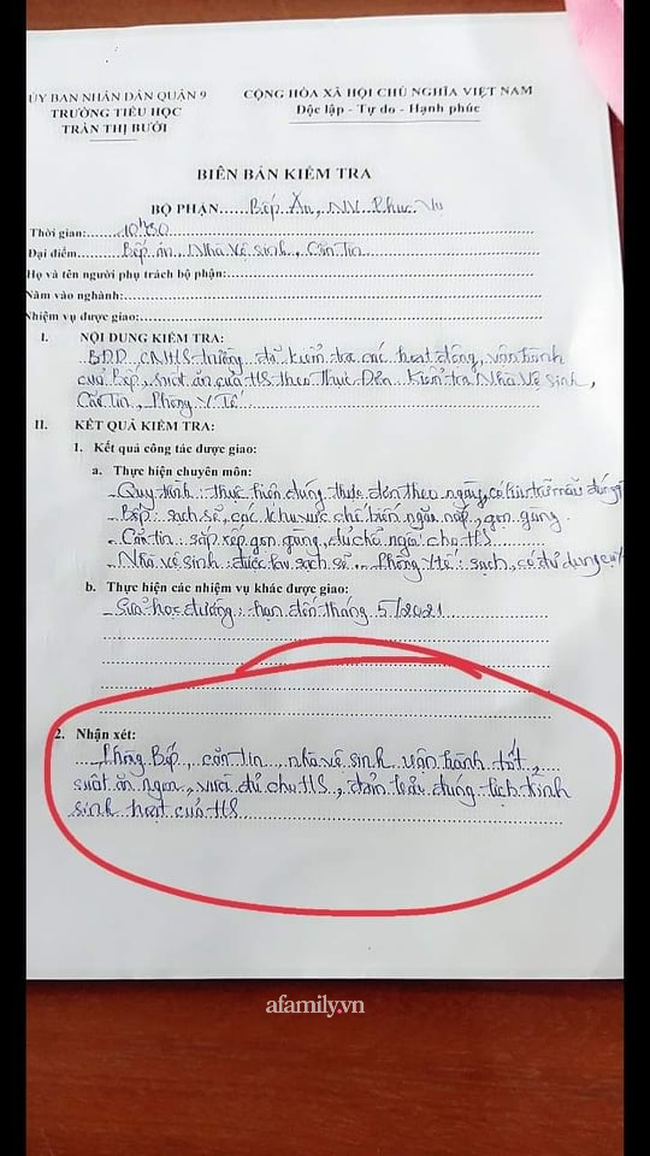 ỦY BAN NHÂN DÂN QUẬN 9
TRƯỜNG TIỂU HỌC
TRẦN THỊ BƯỞI
CỘNG HÒA XÃ HỘI CHỦ NGHĨA VIỆT NAM
Độc lập - Tự do - Hạnh phúc
BIÊN BẢN KIỂM TRA
BỘ PHẬN..... Bếp Ăn, NV Phục Vụ
Thời gian: 10h30
Đại điểm: Bếp ăn, Nhà vệ sinh, Căn Tin
Họ và tên người phụ trách bộ phận:
Năm vào nghành:
Nhiệm vụ được giao:
I. NỘI DUNG KIỂM TRA:
BĐD CMHS trường đã kiểm tra các hoạt động, vận hành
của Bếp, suất ăn của HS theo Thực Đơn Kiểm tra Nhà Vệ sinh,
Căn Tin, Phòng Y Tế
II. KẾT QUẢ KIỂM TRA:
1. Kết quả công tác được giao:
a. Thực hiện chuyên môn:
- Quy trình: thực hiện đúng thực đơn theo ngày, có lưu trữ mẫu đúng
- Bếp: sạch sẽ, các khu vực chế biến ngăn nắp, gọn gàng.
- Căn tin: sắp xếp gọn gàng, đủ chỗ ngồi cho HS
- Nhà vệ sinh: được lau sạch sẽ. - Phòng Y tế: sạch, có đủ dụng cụ
b. Thực hiện các nhiệm vụ khác được giao:
- Sữa học đường: hạn đến tháng 5/2021
2. Nhận xét:
Phòng Bếp, căn tin, nhà vệ sinh vận hành tốt,
suất ăn ngon, vừa đủ cho HS, đảm bảo đúng lịch trình
sinh hoạt của HS
afamily.vn